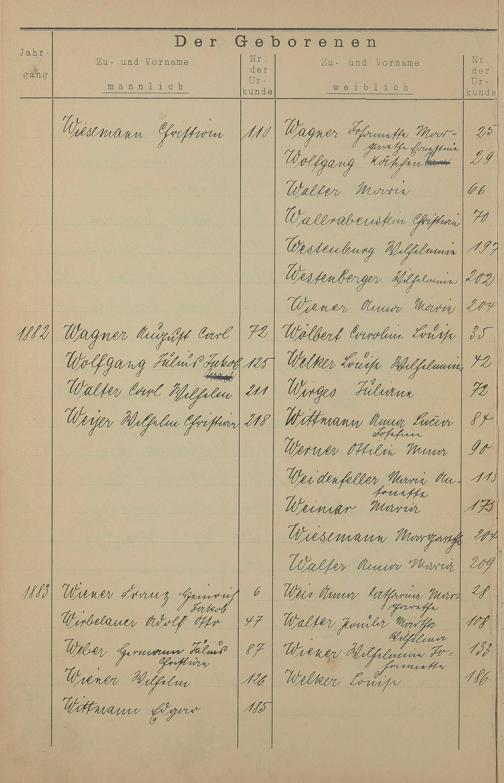 Der Geborenen
Jahr-
gang
Zu- und Vorname
männlich
Nr.
der
Ur-
kunde
Zu- und Vorname
weiblich
Nr.
der
Ur-
kunde
Wiesemann Christian 110 Wagner Johannette Mar-
garethe Ernestine 25
Wolfgang Käthchen 29
Walter Marie 66
Wallrabenstein Christian 70
Westenburg Wilhelmine 197
Westenberger Wilhelmine 202
Wiener Anna Maria 204
1882 Wagner August Carl 72 Wolbert Carolin Louise 35
Wolfgang Julius Jakob 125 Welker Louise Wilhelmine 42
Walter Carl Wilhelm 211 Wirges Juliane 72
Weyer Wilhelm Christian 218 Wittmann Anna Lucia 84
Josefine
Werner Ottilie Anna 90
Weidenfeller Maria An- 115
tonette
Weimar Maria 175
Wiesemann Margarethe 204
Walter Anna Maria 209
1883 Wiener Franz Heinrich 6 Weis Anna Katharina Mar- 28
Jakob garethe
Wirbelauer Adolf Otto 47 Walter Paula Martha 108
Wilhelmine
Weber Germann Julius 87 Wiener Wilhelmine Jo- 135
Christian hannette
Wiener Wilhelm 126 Welker Louise 186
Wittmann Edgar 185